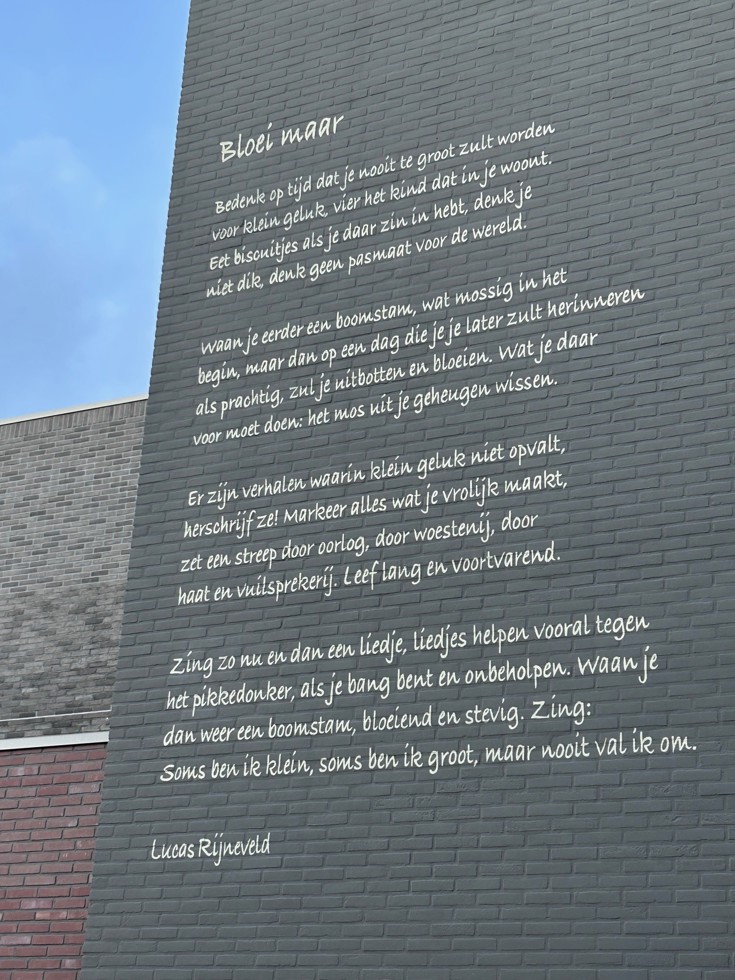 Bloei maar
Bedenk op tijd dat je nooit te groot zult worden
voor klein geluk, vier het kind dat in je woont.
Eet biscuitjes als je daar zin in hebt, denk je
niet dik, denk geen pasmaat voor de wereld.
Waan je eerder een boomstam, wat mossig in het
begin, maar dan op een dag die je je later zult herinneren
als prachtig, zul je uitbotten en bloeien. Wat je daar
voor moet doen: het mos uit je geheugen wissen.
Er zijn verhalen waarin klein geluk niet opvalt,
herschrijf ze! Markeer alles wat je vrolijk maakt,
zet een streep door oorlog, door woestenij, door
haat en vuilsprekerij. Leef lang en voortvarend.
Zing zo nu en dan een liedje, liedjes helpen vooral tegen
het pikkedonker, als je bang bent en onbeholpen. Waan je
dan weer een boomstam, bloeiend en stevig. Zing:
Soms ben ik klein, soms ben ik groot, maar nooit val ik om.
Lucas Rijneveld